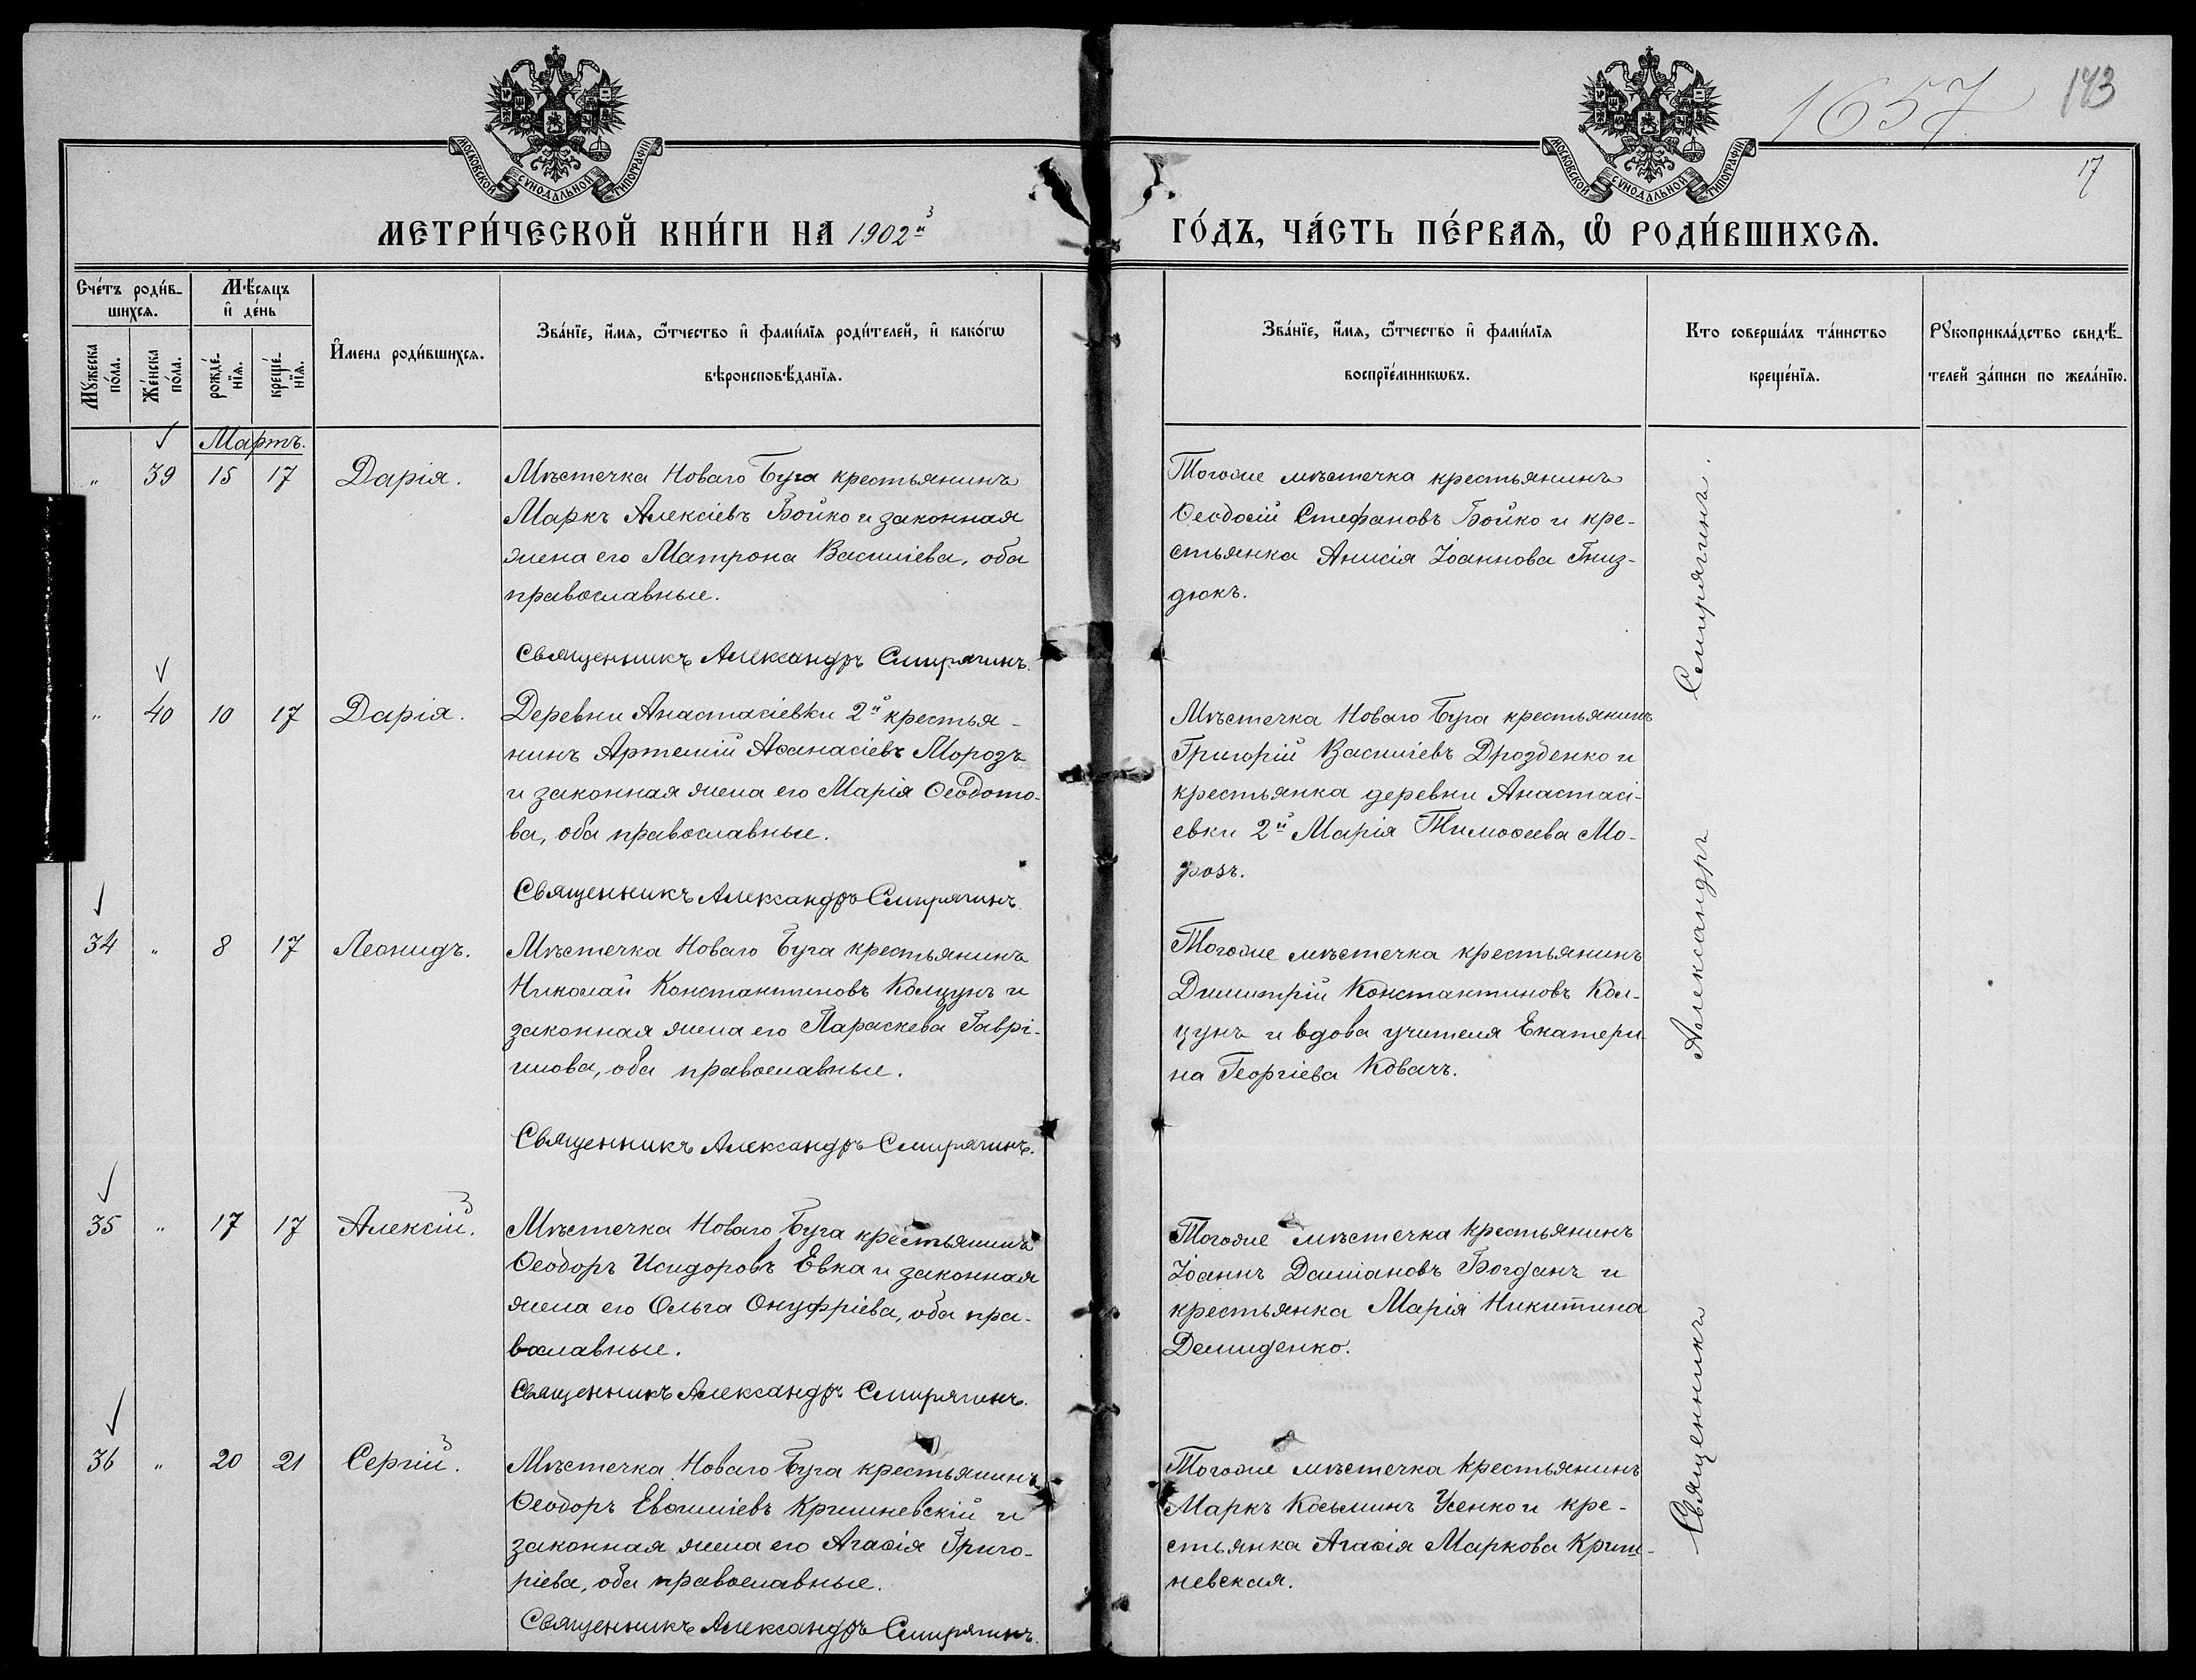 1657
173
17
МОСКОВСКОЙ СѴНОДАЛЬНОЙ ТИПОГРАФІИ
МОСКОВСКОЙ СѴНОДАЛЬНОЙ ТИПОГРАФІИ
МЕТРИ́ЧЕСКОЙ КНИ́ГИ НА 1902й
ГО́ДЪ, ЧА́СТЬ ПЕ́РВАѦ, Ѽ РОДИ́ВШИХСѦ.
Сче́тъ роди́в-
шихсѧ.
Мꙋжеска
по́ла.
Же́нска
по́ла.
Мѣ́сяцъ
и҆ де́нь
рожде́-
нїѧ.
креще́-
нїѧ.
И҆мена роди́вшихсѧ.
Зва́нїе, и҆́мѧ, ѻ҆́тчество и҆ фами́лїѧ роди́телей, и҆ како́гѡ
вѣроисповѣ́данїѧ.
Зва́нїе, и҆́мѧ, ѻ҆́тчество и҆ фами́лїѧ
воспрїе́мникѡвъ.
Кто соверша́лъ та́инство
креще́нїѧ.
Рꙋкоприкла́дство свидѣ́-
телей за́писи по жела́нїю.
Мартъ.
" 39 15 17 Дарія.
Мѣстечка Новаго Буга крестьянинъ
Маркъ Алексіевъ Бойко и законная
жена его Матрона Василіева, оба
православные.
Священникъ Александръ Смирягинъ.
Тогоже мѣстечка крестьянинъ
Ѳеодосій Стефановъ Бойко и кре-
стьянка Анисія Іоаннова Гниз-
дюкъ.
" 40 10 17 Дарія.
Деревни Анастасіевки 2й крестья-
нинъ Артемій Аѳанасіевъ Морозъ
и законная жена его Марія Ѳеодото-
ва, оба православные.
Священникъ Александръ Смирягинъ
Мѣстечка Новаго Буга крестьянинъ
Григорій Василіевъ Дрозденко и
крестьянка деревни Анастасі-
евки 2й Марія Тимоѳеева Мо-
розъ.
34 " 8 17 Леонидъ.
Мѣстечка Новаго Буга крестьянинъ
Николай Константиновъ Колцунъ и
законная жена его Параскева Гаврі-
илова, оба православные.
Священникъ Александръ Смирягинъ.
Тогоже мѣстечка крестьянинъ
Димитрій Константиновъ Кол-
цунъ и вдова учителя Екатери
на Георгіева Ковачъ.
35 " 17 17 Алексій.
Мѣстечка Новаго Буга крестьянинъ
Ѳеодоръ Исидоровъ Евка и законная
жена его Ольга Онуфріева, оба пра-
вославные.
Священникъ Александръ Смирягинъ.
Тогоже мѣстечка крестьянинъ
Іоаннъ Даміановъ Богданъ и
крестьянка Марія Никитина
Демиденко.
36 " 20 21 Сергій.
Мѣстечка Новаго Буга крестьянинъ
Ѳеодоръ Евѳиміевъ Кришневскій и
законная жена его Агаѳія Григо-
ріева, оба православные.
Священникъ Александръ Смирягинъ.
Тогоже мѣстечка крестьянинъ
Маркъ Косьминъ Усенко и кре-
стьянка Агаѳія Маркова Криш-
невская.
Священникъ Александръ Смирягинъ.